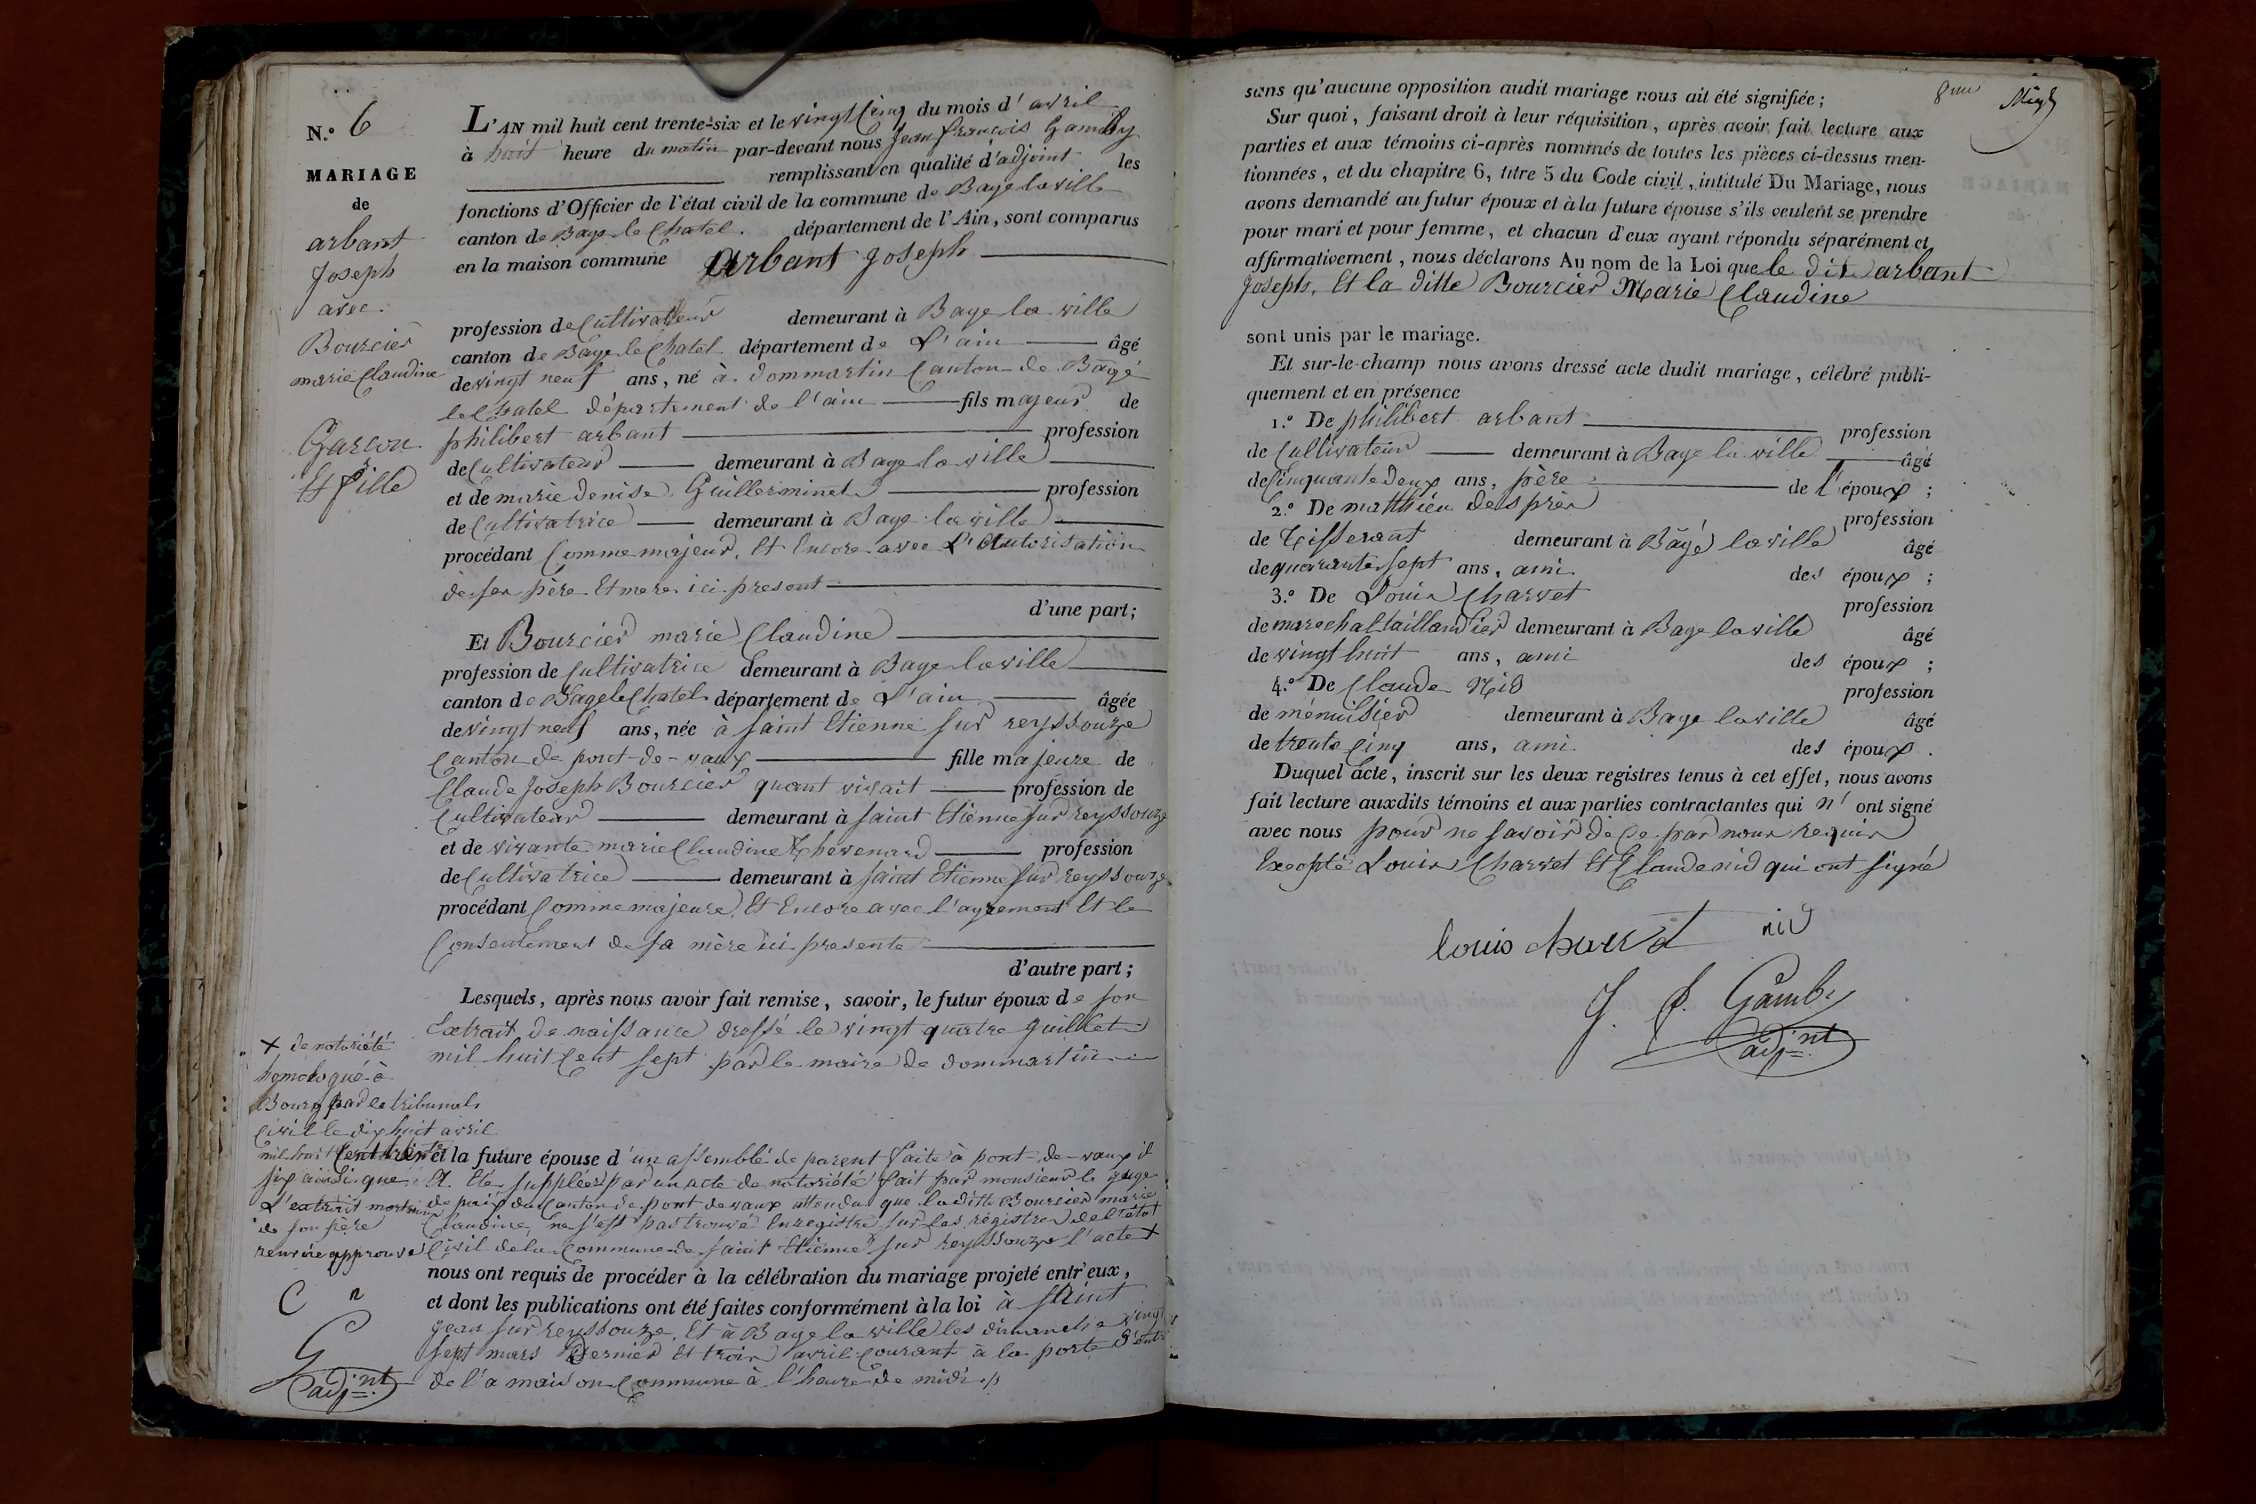 N.° 6
MARIAGE
de
arbant
Joseph
avec
Bourcier
marie Claudine
Garcon
Et fille
L'AN mil huit cent trente-six et le vingt Cinq du mois d'avril
à huit heure du matin par-devant nous Jean francois Gamby
remplissant en qualité d'adjoint les
fonctions d'Officier de l'état civil de la commune de Baye la ville
canton de Baye le Chatel. département de l'Ain, sont comparus
en la maison commune Arbant Joseph
profession de Cultivateur demeurant à Baye la ville
canton de Baye le Chatel département de L'ain âgé
de vingt neuf ans, né à dommartin Canton de Bagé
le Chatel département de l'ain fils majeur de
philibert arbant profession
de Cultivateur demeurant à Baye la ville
et de marie denise Guillerminet profession
de Cultivatrice demeurant à Baye la ville
procédant Comme majeur, Et Encore avec L'Autorisation
de ser père Et mere ici present
d'une part;
Et Bourcier marie Claudine
profession de Cultivatrice demeurant à Baye la ville
canton de Bage le Chatel département de L'ain âgée
de vingt neuf ans, née à saint Etienne sur reyssouze
Canton de pont-de-vaux fille majeure de
Claude Joseph Bourcier quant vivait profession de
Cultivateur demeurant à saint Etienne sur reyssouze
et de vivante marie Claudine Thevenard profession
de Cultivatrice demeurant à saint Etienne sur reyssouze
procédant Comme majeure, Et Encore avec l'agrement Et le
Consentement de sa mère ici presente
d'autre part;
Lesquels, après nous avoir fait remise, savoir, le futur époux de son
Extrait de naissance dressé le vingt quatre Juillet
mil huit Cent sept par le maire de dommartin
et la future épouse d'un assemblé de parent faite à pont-de-vaux il
A Eté suppléer par un acte de notoriété fait par monsieur le juge
de paix du Canton de pont de vaux attendu que la ditte Bourcier marie
Claudine, ne s'est pas trouvé Enregistré sur les régistres de l'état
Civil de la Commune de saint Etienne sur reyssouze l'acte X
nous ont requis de procéder à la célébration du mariage projeté entr'eux,
et dont les publications ont été faites conformément à la loi à saint
Jean sur reyssouze, Et à Baye la ville les dimanche vingt
sept mars Dernier Et trois avril Courant à la porte d'entré
de l'a maison Commune à l'heure de midi
X de notoriété
homologué à
Bourg par le tribunal
Civil le dix huit avril
mil huit Cent trente
six ainsi que
L'extrait mortuaire
de son père
renvoie approuvé
C n
G
adj.nt
8me
sans qu'aucune opposition audit mariage nous ait été signifiée;
Sur quoi, faisant droit à leur réquisition, après avoir fait lecture aux
parties et aux témoins ci-après nommés de toutes les pièces ci-dessus men-
tionnées, et du chapitre 6, titre 5 du Code civil, intitulé Du Mariage, nous
avons demandé au futur époux et à la future épouse s'ils veulent se prendre
pour mari et pour femme, et chacun d'eux ayant répondu séparément et
affirmativement, nous déclarons Au nom de la Loi que le dit arbant
Joseph. Et la ditte Bourcier Marie Claudine
sont unis par le mariage.
Et sur-le-champ nous avons dressé acte dudit mariage, célébré publi-
quement et en présence
1.° De philibert arbant profession
de Cultivateur demeurant à Baye la ville âgé
de Cinquante deux ans, père de l'époux;
2.° De matthieu desprès profession
de Tisserant demeurant à Bâgé la ville âgé
de quarante sept ans, ami des époux;
3.° De Louis Charvet profession
de marechal taillandier demeurant à Baye la ville âgé
de vingt huit ans, ami des époux;
4.° De Claude Nid profession
de ménuisier demeurant à Baye la ville âgé
de trente Cinq ans, ami des époux.
Duquel acte, inscrit sur les deux registres tenus à cet effet, nous avons
fait lecture auxdits témoins et aux parties contractantes qui n'ont signé
avec nous pour ne savoir de Ce par nous requis
Excepté Louis Charvet Et Claude nid qui ont signé
louis charvet nid
J. f. Gamby
adj.nt